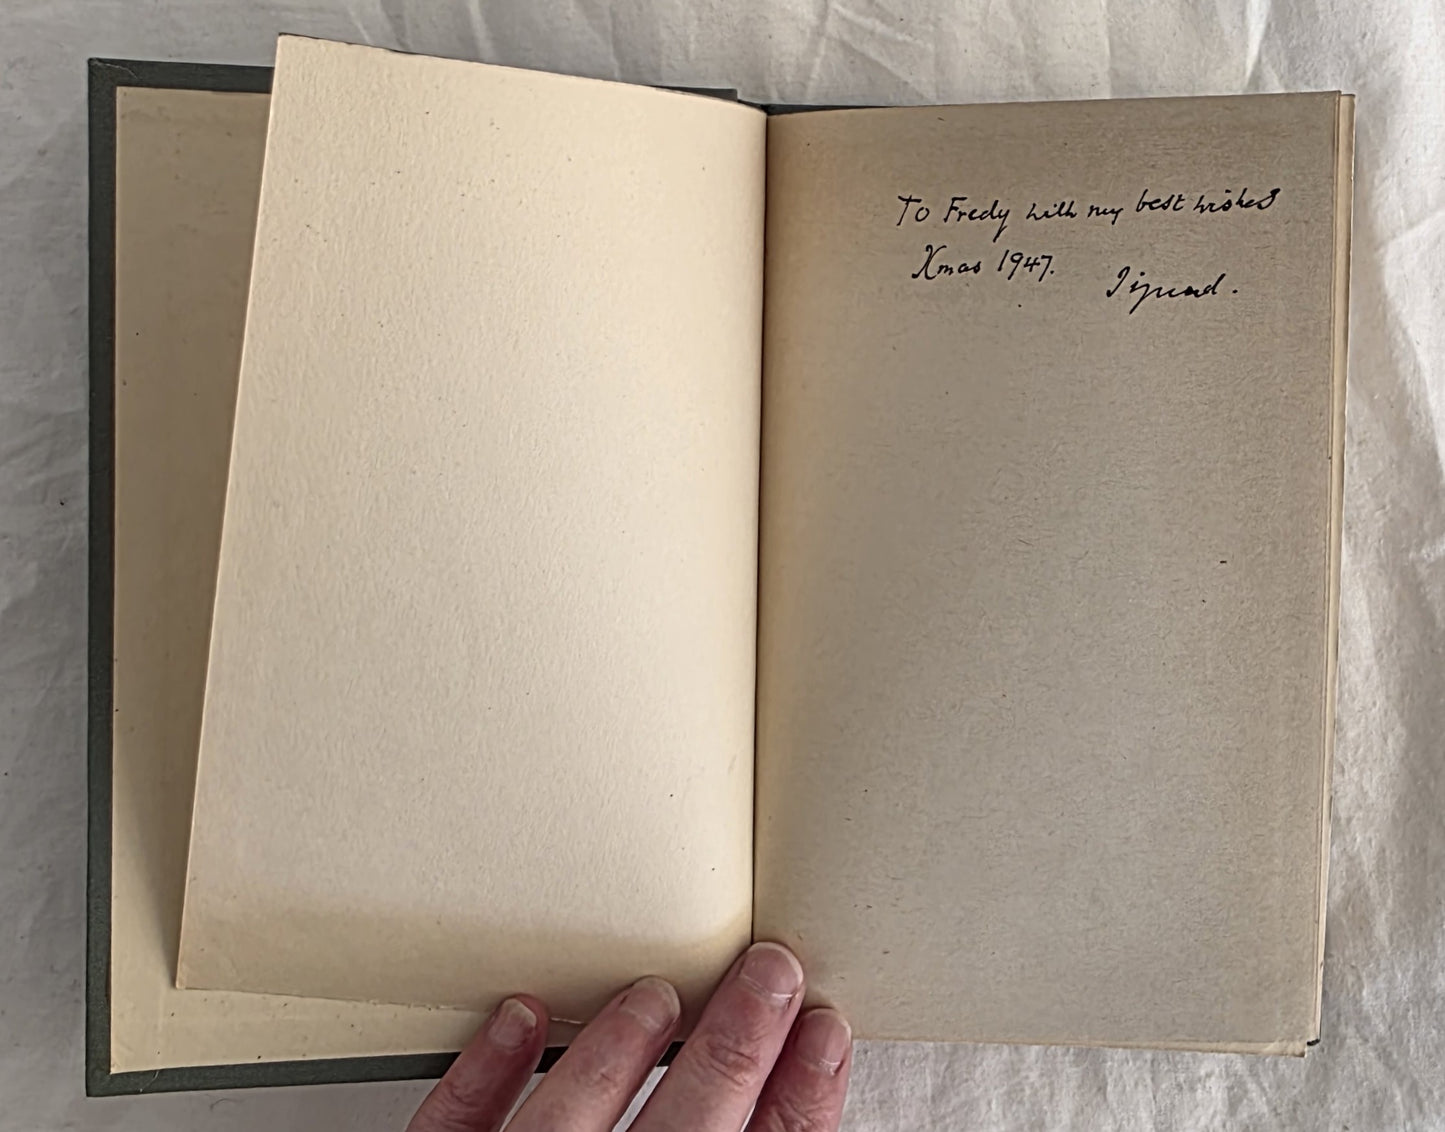 To Fredy with my best wishes
Xmas 1947.